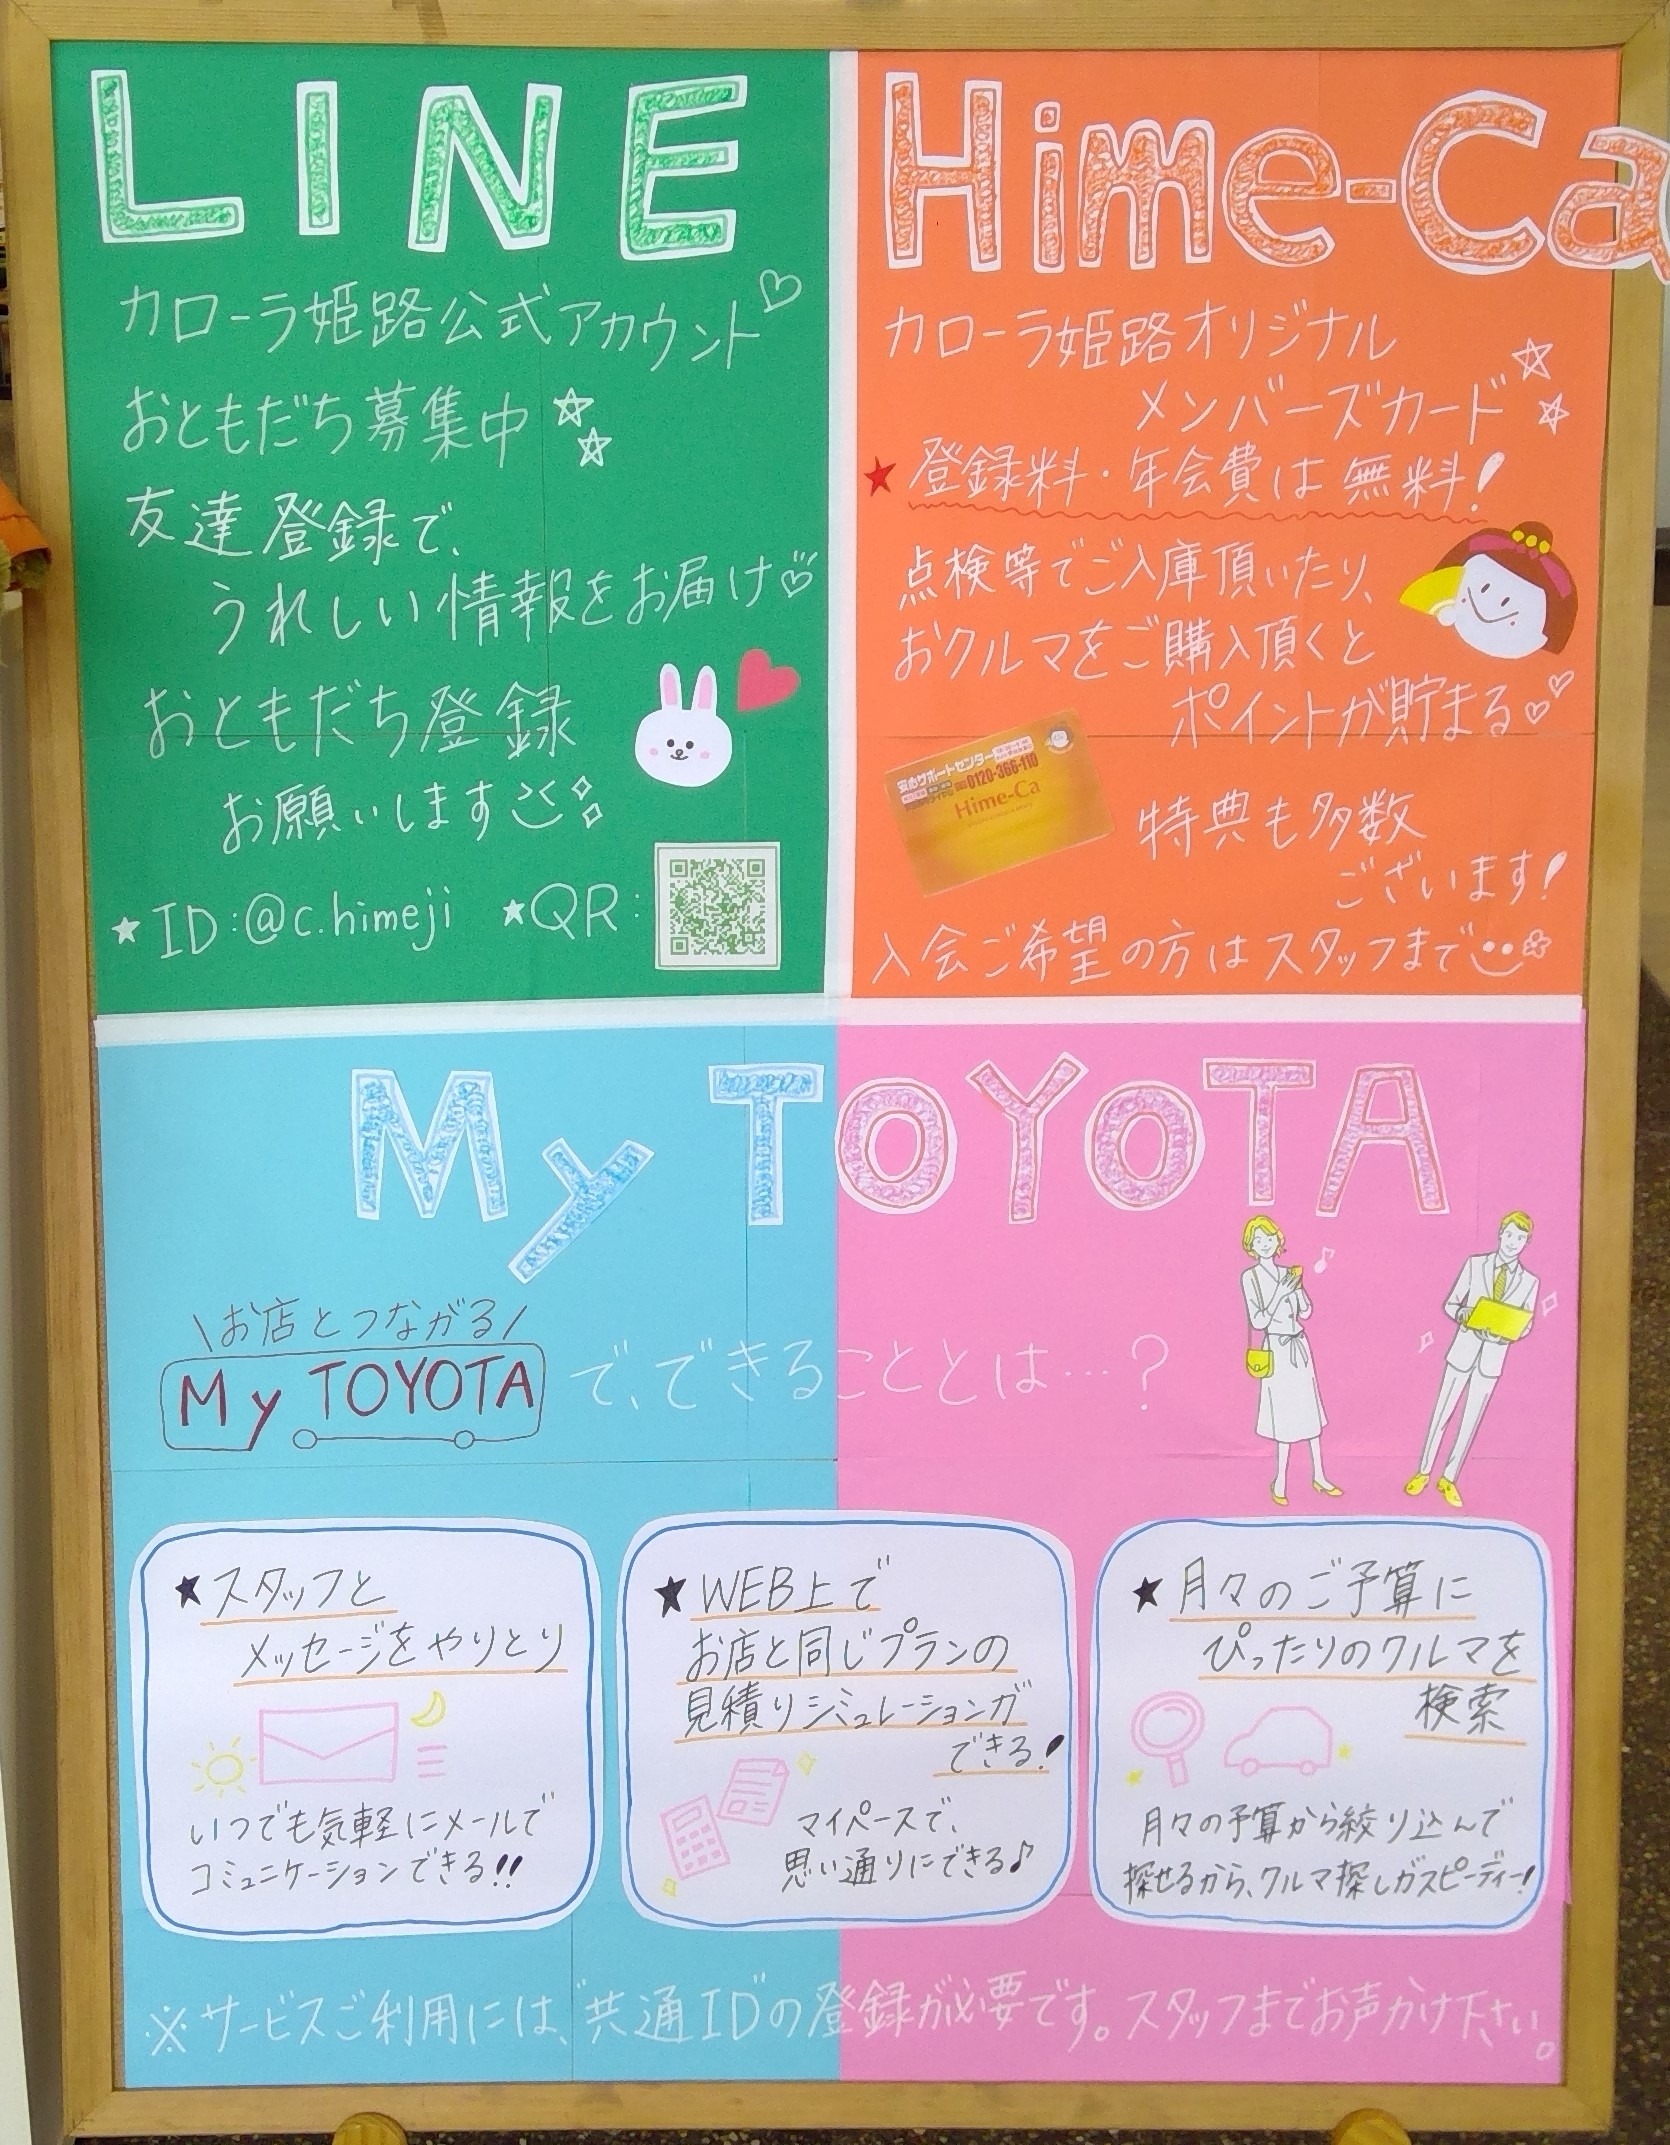 LINE
カローラ姫路公式アカウント
おともだち募集中
友達登録で、
うれしい情報をお届け
おともだち登録
お願いします
★ID:@c.himeji ★QR:
Hime-Ca
カローラ姫路オリジナル
メンバーズカード
★登録料・年会費は無料!
点検等でご入庫頂いたり、
おクルマをご購入頂くと
ポイントが貯まる
安心サポートセンター
0120-366-110
Hime-Ca
特典も多数
ございます!
入会ご希望の方はスタッフまで
My TOYOTA
\お店とつながる/
My TOYOTA で、できることとは…?
★スタッフと
メッセージをやりとり
いつでも気軽にメールで
コミュニケーションできる!!
★WEB上で
お店と同じプランの
見積りシミュレーションが
できる!
マイペースで、
思い通りにできる♪
★月々のご予算に
ぴったりのクルマを
検索
月々の予算から絞り込んで
探せるから、クルマ探しがスピーディー!
※サービスご利用には、"共通ID"の登録が必要です。スタッフまでお声かけ下さい。